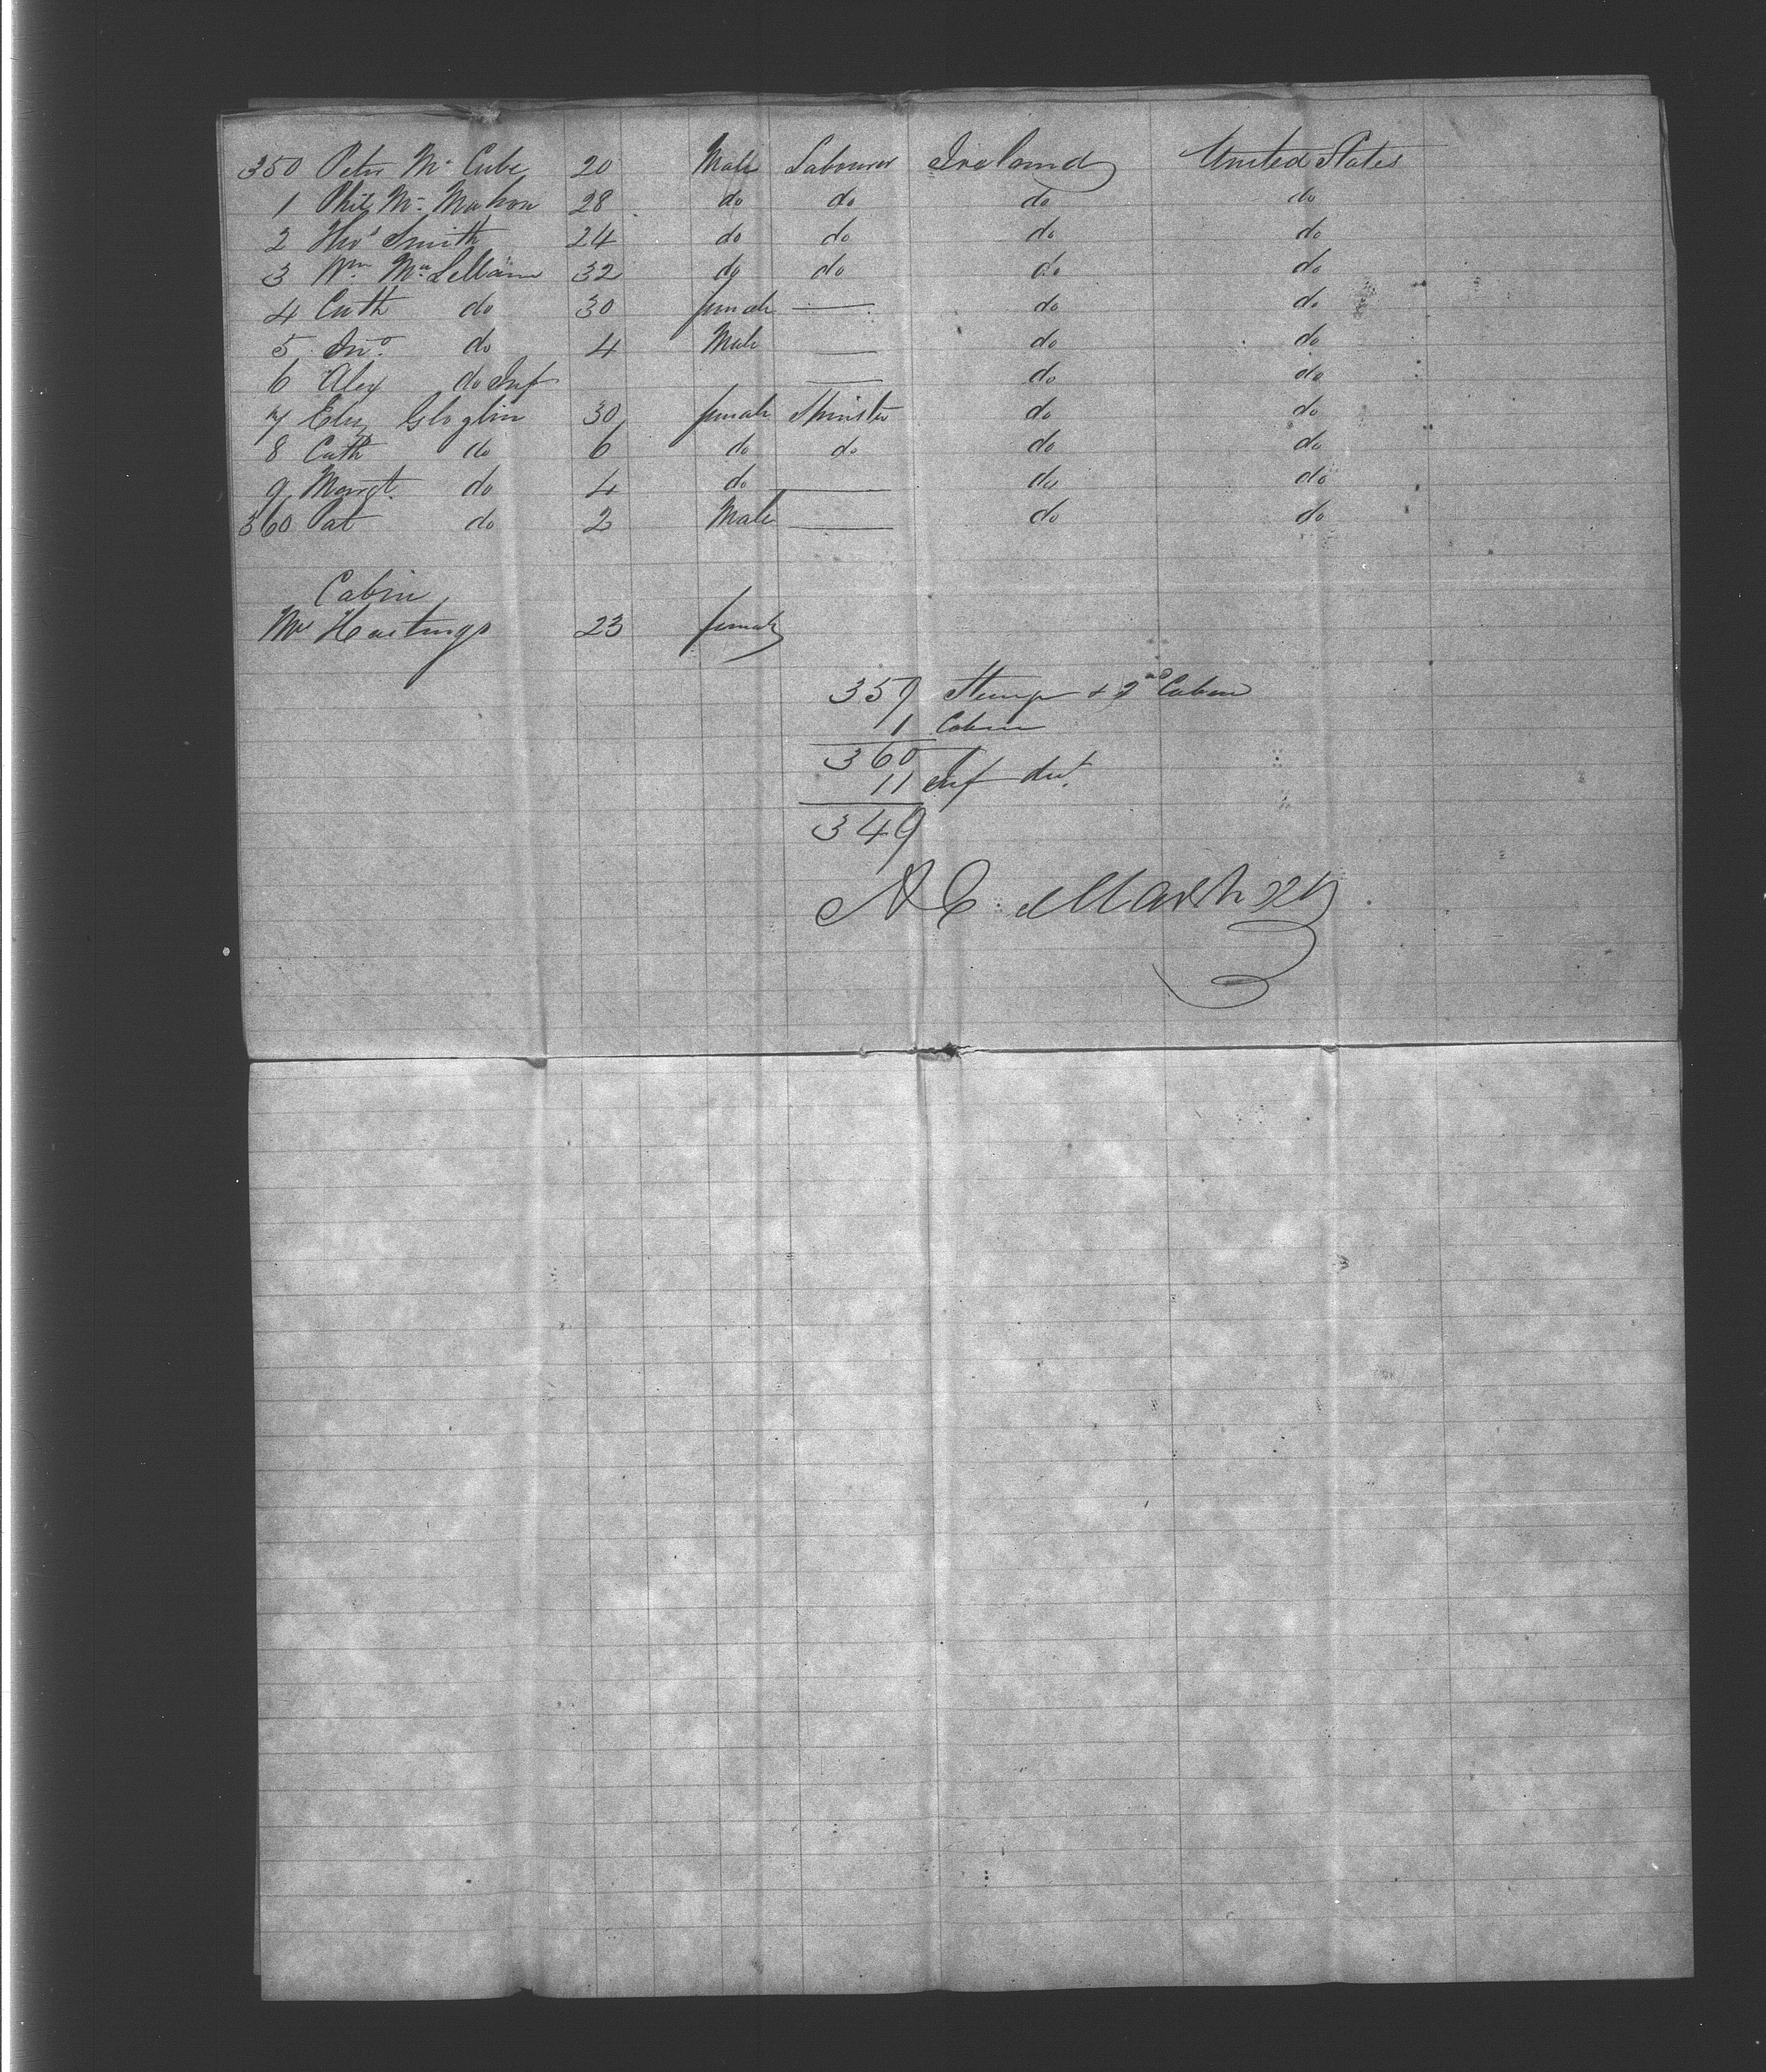 350 Peter Mc Cube 20 Male Labourer Ireland United States
1 Phil Mc Mahon 28 do do do do
2 Thos Smith 24 do do do do
3 Wm Mc Lellann 32 do do do do
4 Cath do 30 female — do do
5 Jno. do 4 Male — do do
6 Alex do Inf — do do
7 Eliz Gloglin 30 female do do
8 Cath do 6 do do do do
9 Margt. do 4 do — do do
360 Pat do 2 Male — do do
Cabin
Mrs Hastings 23 female
359 Steerage & 2nd Cabin
1 Cabin
360
11 Inf
349